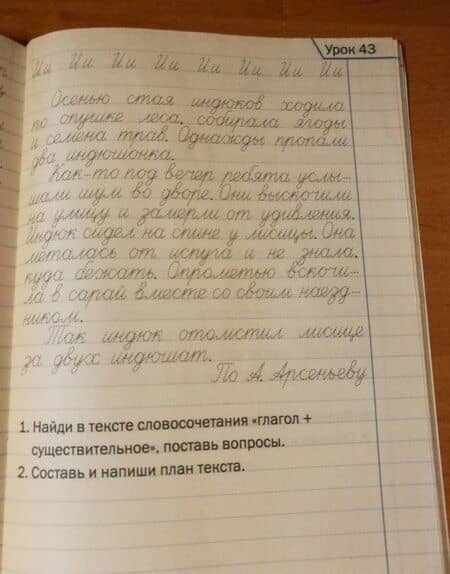 Урок 43
Ии Ии Ии Ии Ии Ии Ии Ии
Осенью стая индюков ходила
по опушке леса, собирала ягоды
и семена трав. Однажды пропали
два индюшонка.
Как-то под вечер ребята услы-
шали шум во дворе. Они выскочили
на улицу и замерли от удивления.
Индюк сидел на спине у лисицы. Она
металась от испуга и не знала,
куда бежать. Опрометью вскочи-
ла в сарай вместе со своим наезд-
ником.
Так индюк отомстил лисице
за двух индюшат.
По А. Арсеньеву
1. Найди в тексте словосочетания «глагол +
существительное», поставь вопросы.
2. Составь и напиши план текста.